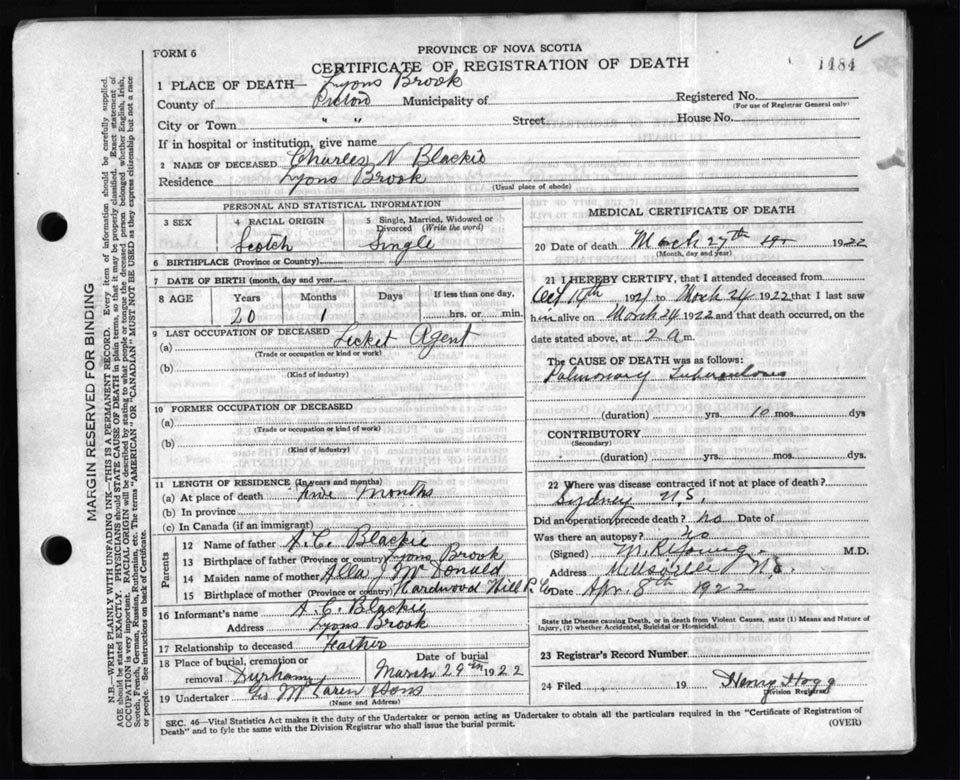 FORM 6
PROVINCE OF NOVA SCOTIA
CERTIFICATE OF REGISTRATION OF DEATH
1484
1 PLACE OF DEATH— Lyons Brook
County of Pictou Municipality of
Registered No.
(For use of Registrar General only)
City or Town " " Street House No.
If in hospital or institution, give name
2 NAME OF DECEASED Charles N Blackie
Residence Lyons Brook
(Usual place of abode)
PERSONAL AND STATISTICAL INFORMATION
3 SEX
4 RACIAL ORIGIN
Scotch
5 Single, Married, Widowed or Divorced (Write the word)
Single
6 BIRTHPLACE (Province or Country)
7 DATE OF BIRTH (month, day and year)
8 AGE Years Months Days If less than one day,
20 1 hrs. or min.
9 LAST OCCUPATION OF DECEASED
(a) Ticket Agent
(Trade or occupation or kind or work)
(b)
(Kind of industry)
10 FORMER OCCUPATION OF DECEASED
(a)
(Trade or occupation or kind of work)
(b)
(Kind of industry)
11 LENGTH OF RESIDENCE (In years and months)
(a) At place of death Five months
(b) In province
(c) In Canada (if an immigrant)
Parents
12 Name of father A.C. Blackie
13 Birthplace of father (Province or country) Lyons Brook
14 Maiden name of mother Alla J McDonald
15 Birthplace of mother (Province or country) Hardwood Hill P. Co
16 Informant's name A.C. Blackie
Address Lyons Brook
17 Relationship to deceased Father
18 Place of burial, cremation or removal Durham
Date of burial
March 29th 1922
19 Undertaker Geo McLaren Sons
(Name and Address)
MEDICAL CERTIFICATE OF DEATH
20 Date of death March 27th 1922
(Month, day and year)
21 I HEREBY CERTIFY, that I attended deceased from
Oct 1921 to March 24 1922, that I last saw
him alive on March 24 1922 and that death occurred, on the
date stated above, at 2 a m.
The CAUSE OF DEATH was as follows:
Pulmonary Tuberculosis
(duration) yrs. 10 mos. dys
CONTRIBUTORY
(Secondary)
(duration) yrs. mos. dys.
22 Where was disease contracted if not at place of death?
Sydney N.S.
Did an operation precede death? no Date of
Was there an autopsy? no
(Signed) M R Young M.D.
Address Millsville N.S.
Date Apr. 8th 1922
State the Disease causing Death, or in death from Violent Causes, state (1) Means and Nature of
Injury, (2) whether Accidental, Suicidal or Homicidal.
23 Registrar's Record Number
24 Filed 19 Henry Hogg
Division Registrar
SEC. 46—Vital Statistics Act makes it the duty of the Undertaker or person acting as Undertaker to obtain all the particulars required in the "Certificate of Registration of
Death" and to fyle the same with the Division Registrar who shall issue the burial permit.
(OVER)
MARGIN RESERVED FOR BINDING
N.B.—WRITE PLAINLY WITH UNFADING INK—THIS IS A PERMANENT RECORD. Every item of information should be carefully supplied.
AGE should be stated EXACTLY. PHYSICIANS should STATE CAUSE OF DEATH in plain terms, so that it may be properly classified. Exact statement of
OCCUPATION is very important. RACIAL ORIGIN will be described by stating to what people or tongue the deceased person belonged whether English, Irish,
Scotch, French, German, Russian, Ruthenian, etc. The terms "AMERICAN" OR "CANADIAN" MUST NOT BE USED as they express citizenship but not a race
or people. See instructions on back of Certificate.